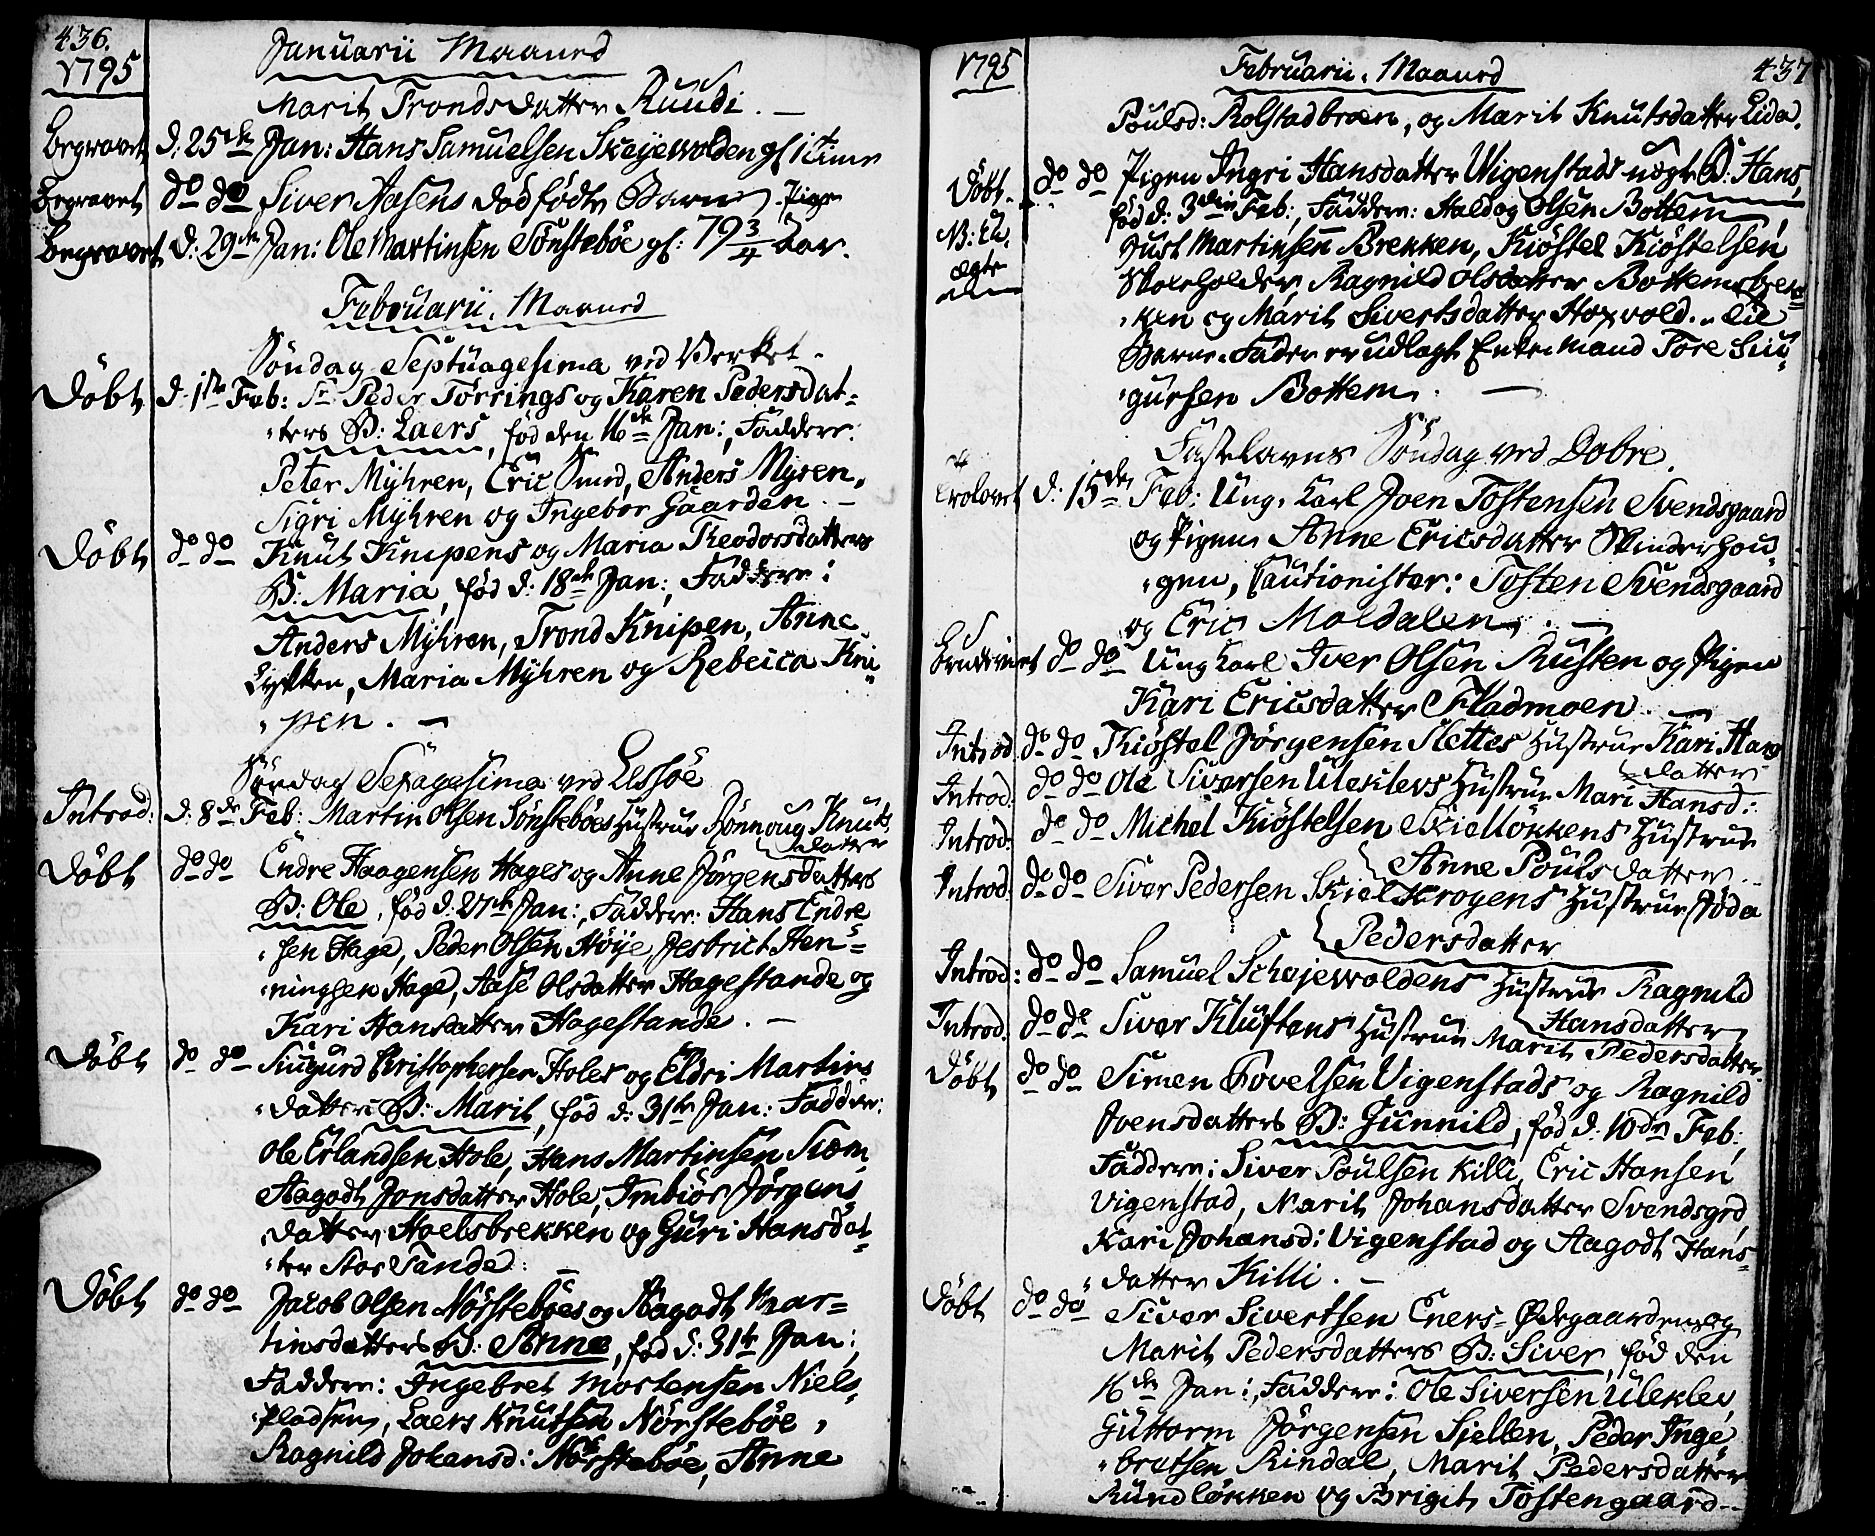 436.
1795
Januarii Maaned
Marit Trondsdatter Ruudi. —
Begravet d: 25de Jan: Hans Samuelsen Skøyewolden gl. 1 Time
Begravet do do Siver Aasens dødfødte Barn. Pige
Begravet d: 29de Jan: Ole Martinsen Sønstebøe gl: 79 3/4 Aar.
Februarii. Maaned
Søndag Septuagesima ved Verket.
Døbt d: 1ste Feb: Sr Peder Tørrings og Karen Pedersdat=
"ters B: Laers, fød den 16de Jan:, Faddere:
Peter Myhren, Eric Smed, Anders Myren,
Sigri Myhren og Ingebor Gaarden. —
Døbt do do Knut Knipens og Maria Theodorsdatters
B: Maria, fød d: 18de Jan:, Faddere:
Anders Myhren, Trond Knipen, Anne
Lykken, Maria Myhren og Rebeica Kni
"pen. —
Søndag Sexagesima ved Lessøe
Introd: d: 8de Feb: Martin Olsen Sønstebøes Hustrue Rønnoug Knuts
datter
Døbt do do Endre Haagensen Hages og Anne Jørgensdatters
B: Ole, fød d: 27de Jan:, Faddere: Hans Endre
"sen Hage, Peder Olsen Høye, Jesbrict Hen=
"ningsen Hage, Aase Olsdatter Hagestande og
Kari Hansdatter Hagestande. —
Døbt do do Siugurd Christophersen Holes og Eldri Martins
"datters B: Marit, fød d: 31te Jan: Faddere:
Ole Erlandsen Hole, Hans Martinsen Kiem,
Aagodt Jonsdatter Hole, Imbiør Jørgens
"datter Hoelsbrekken og Guri Hansdat=
"ter Stor Tande. —
Døbt do do Jacob Olsen Nørstebøes og Aagodt Mar=
tinsdatters B: Anne, fød d: 31te Jan:,
Faddere: Ingebret Mortensen Niels,
"pladsen, Laers Knutsen Nørstebøe,
Ragnild Johansd: Nørstebøe, Anne
1795
Februarii. Maaned
437
Poulsd: Rolstadbraen, og Marit Knutsdatter Lida.
Døbt. do do Pigen Ingri Hansdatter Wigenstads uægte B: Hans,
N: B: U.
ægte
fød d: 3die Feb:, Faddere: Haldog Olsen Bottem,
Just Martinsen Brekken, Kiøstel Kiøstelsen
Skoleholder, Ragnild Olsdatter Bottemsbrek=
"ken og Marit Sivertsdatter Horvold. Til
Barne-Fader er udlagt Enke Mand Tore Siu"
"gursen Bottem. —
Fastelavns Søndag ved Dobre.
Trolovet d: 15de Feb: Ung Karl Joen Tostensen Svendsgaard
og Pigen Anne Ericsdatter Skinderhou"
"gen, Cautionister: Tosten Svendsgaard
og Eric Moldalen. —
Brudeviet do do Ung Karl Iver Olsen Rusten og Pigen
Kari Ericsdatter Fladmoen. —
Introd. do do Kiøstel Jørgensen Slettes Hustrue Kari Hans
datter
Introd: do do Ole Siversen Uleklevs Hustrue Mari Hansd:
Introd: do do Michel Kiøstelsen Skielløkkens Hustrue
Anne Pouls datter.
Introd: do do Siver Pedersen Skielkrogens Hustrue Jøda
Pedersdatter
Introd: do do Samuel Schøjewoldens Hustrue Ragnild
Hansdatter
Introd: do do Siver Kluftens Hustrue Marit Pedersdatter.
Døbt do do Simen Povelsen Vigenstads og Ragnild
Joensdatters B: Gunnild, fød d: 10de Feb:,
Faddere: Siver Poulsen Killi, Eric Hansen
Vigenstad, Marit Johansdatter Svendsgrd,
Kari Johansd: Vigenstad og Aagodt Hans=
"datter Killi. —
Døbt do do Siver Sivertsen Eners=Ødegaardens og
Marit Pedersdatters B: Siver, fød den
16de Jan:, Faddere: Ole Siversen Uleklev,
Guttorm Jørgensen Siellen, Peder Inge"
"bretsen Rindal, Marit Pedersdatter
Rundløkken og Brigit Tostengaard. —